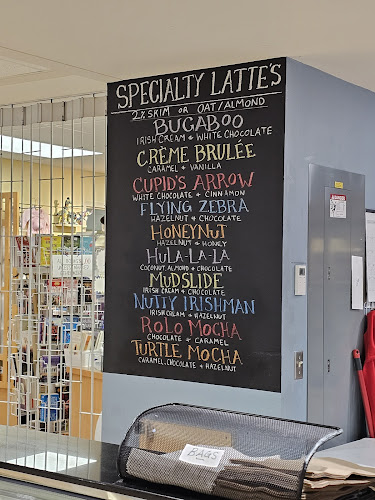 SPECIALTY LATTE'S
2% SKIM OR OAT/ALMOND
BUGABOO
IRISH CREAM & WHITE CHOCOLATE
CRÈME BRULÉE
CARAMEL & VANILLA
CUPID'S ARROW
WHITE CHOCOLATE & CINNAMON
FLYING ZEBRA
HAZELNUT & CHOCOLATE
HONEYNUT
HAZELNUT & HONEY
HULA-LA-LA
COCONUT, ALMOND & CHOCOLATE
MUDSLIDE
IRISH CREAM & CHOCOLATE
NUTTY IRISHMAN
IRISH CREAM & HAZELNUT
ROLO MOCHA
CHOCOLATE & CARAMEL
TURTLE MOCHA
CARAMEL, CHOCOLATE & HAZELNUT
BAGS